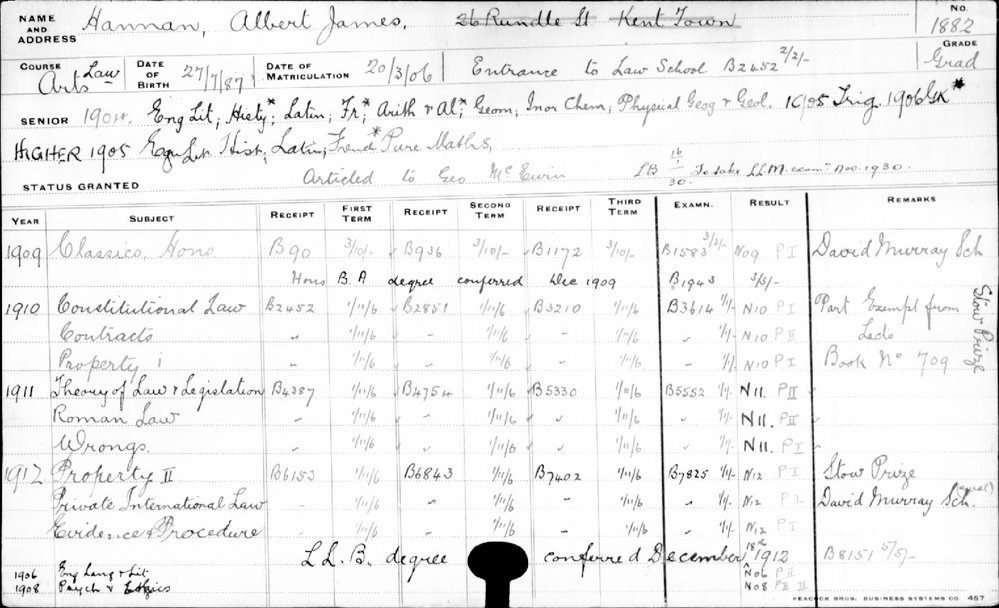 NAME AND ADDRESS Hannan, Albert James. 26 Rundle St Kent Town No. 1882
COURSE Arts Law DATE OF BIRTH 27/7/87 DATE OF MATRICULATION 20/3/06 Entrance to Law School B2452 2/2/- GRADE Grad
SENIOR 1904. Eng Lit; Hist*; Latin; Fr*; Arith & Al*; Geom; Inor Chem; Physical Geog & Geol. 1905 Trig. 1906 GK*
HIGHER 1905 Eng Lit Hist; Latin; French* Pure Maths,
STATUS GRANTED Articled to Geo McEwin LB 16/30. To take LL.M. exam" Nov. 1930.
YEAR SUBJECT RECEIPT FIRST TERM RECEIPT SECOND TERM RECEIPT THIRD TERM EXAMN. RESULT REMARKS
1909 Classics, Hons B90 3/10/- B936 3/10/- B1172 3/10/- B1583 3/3/- N09 P I David Murray Sch
Hons B.A degree conferred Dec 1909 B1943 3/3/-
1910 Constitutional Law B2452 1/11/6 B2851 1/11/6 B3210 1/11/6 B3614 1/1/- N10 P I Part Exempt from
Contracts 1/11/6 " 1/11/6 " 1/11/6 " 1/1/- N10 P II Lects
Property i 1/11/6 1/11/6 1/11/6 - 1/1/- N10 P I Book No 709
Stow Prize
1911 Theory of Law & Legislation B4387 1/11/6 B4754 1/11/6 B5330 1/11/6 B5552 1/1/- N11. P II
Roman Law " 1/11/6 " 1/11/6 " 1/11/6 " 1/1/- N11. P II
Wrongs. " 1/11/6 " 1/11/6 " 1/11/6 " 1/1/- N11. P I
1912 Property II B6153 1/11/6 B6843 1/11/6 B7402 1/11/6 B7825 1/1/- N12 P I Stow Prize
Private International Law - 1/11/6 " 1/11/6 " 1/11/6 " 1/1/- N12 P I David Murray Sch. (equal)
Evidence & Procedure 1/11/6 - 1/11/6 " 1/11/6 " 1/1/- N12 P I
LL.B. degree conferred December 18th 1912 B8151 5/5/-
1906 Eng Lang & Lit N06 P II
1908 Psych & Logics N08 P II
PEACOCK BROS. BUSINESS SYSTEMS CO. 457